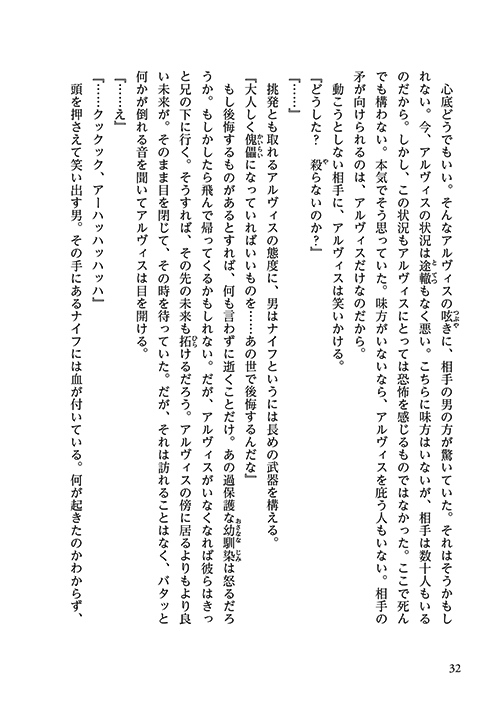 心底どうでもいい。そんなアルヴィスの呟きに、相手の男の方が驚いていた。それはそうかもし
れない。今、アルヴィスの状況は途轍もなく悪い。こちらに味方はいないが、相手は数十人もいる
のだから。しかし、この状況もアルヴィスにとっては恐怖を感じるものではなかった。ここで死ん
でも構わない。本気でそう思っていた。味方がいないなら、アルヴィスを庇う人もいない。相手の
矛が向けられるのは、アルヴィスだけなのだから。
動こうとしない相手に、アルヴィスは笑いかける。
『どうした？　殺らないのか？』
『……』
挑発とも取れるアルヴィスの態度に、男はナイフというには長めの武器を構える。
『大人しく傀儡になっていればいいものを……あの世で後悔するんだな』
もし後悔するものがあるとすれば、何も言わずに逝くことだけ。あの過保護な幼馴染は怒るだろ
うか。もしかしたら飛んで帰ってくるかもしれない。だが、アルヴィスがいなくなれば彼らはきっ
と兄の下に行く。そうすれば、その先の未来も拓けるだろう。アルヴィスの傍に居るよりもより良
い未来が。そのまま目を閉じて、その時を待っていた。だが、それは訪れることはなく、バタッと
何かが倒れる音を聞いてアルヴィスは目を開ける。
『……え』
『……クックック、アーハッハッハッハ』
頭を押さえて笑い出す男。その手にあるナイフには血が付いている。何が起きたのかわからず、
32